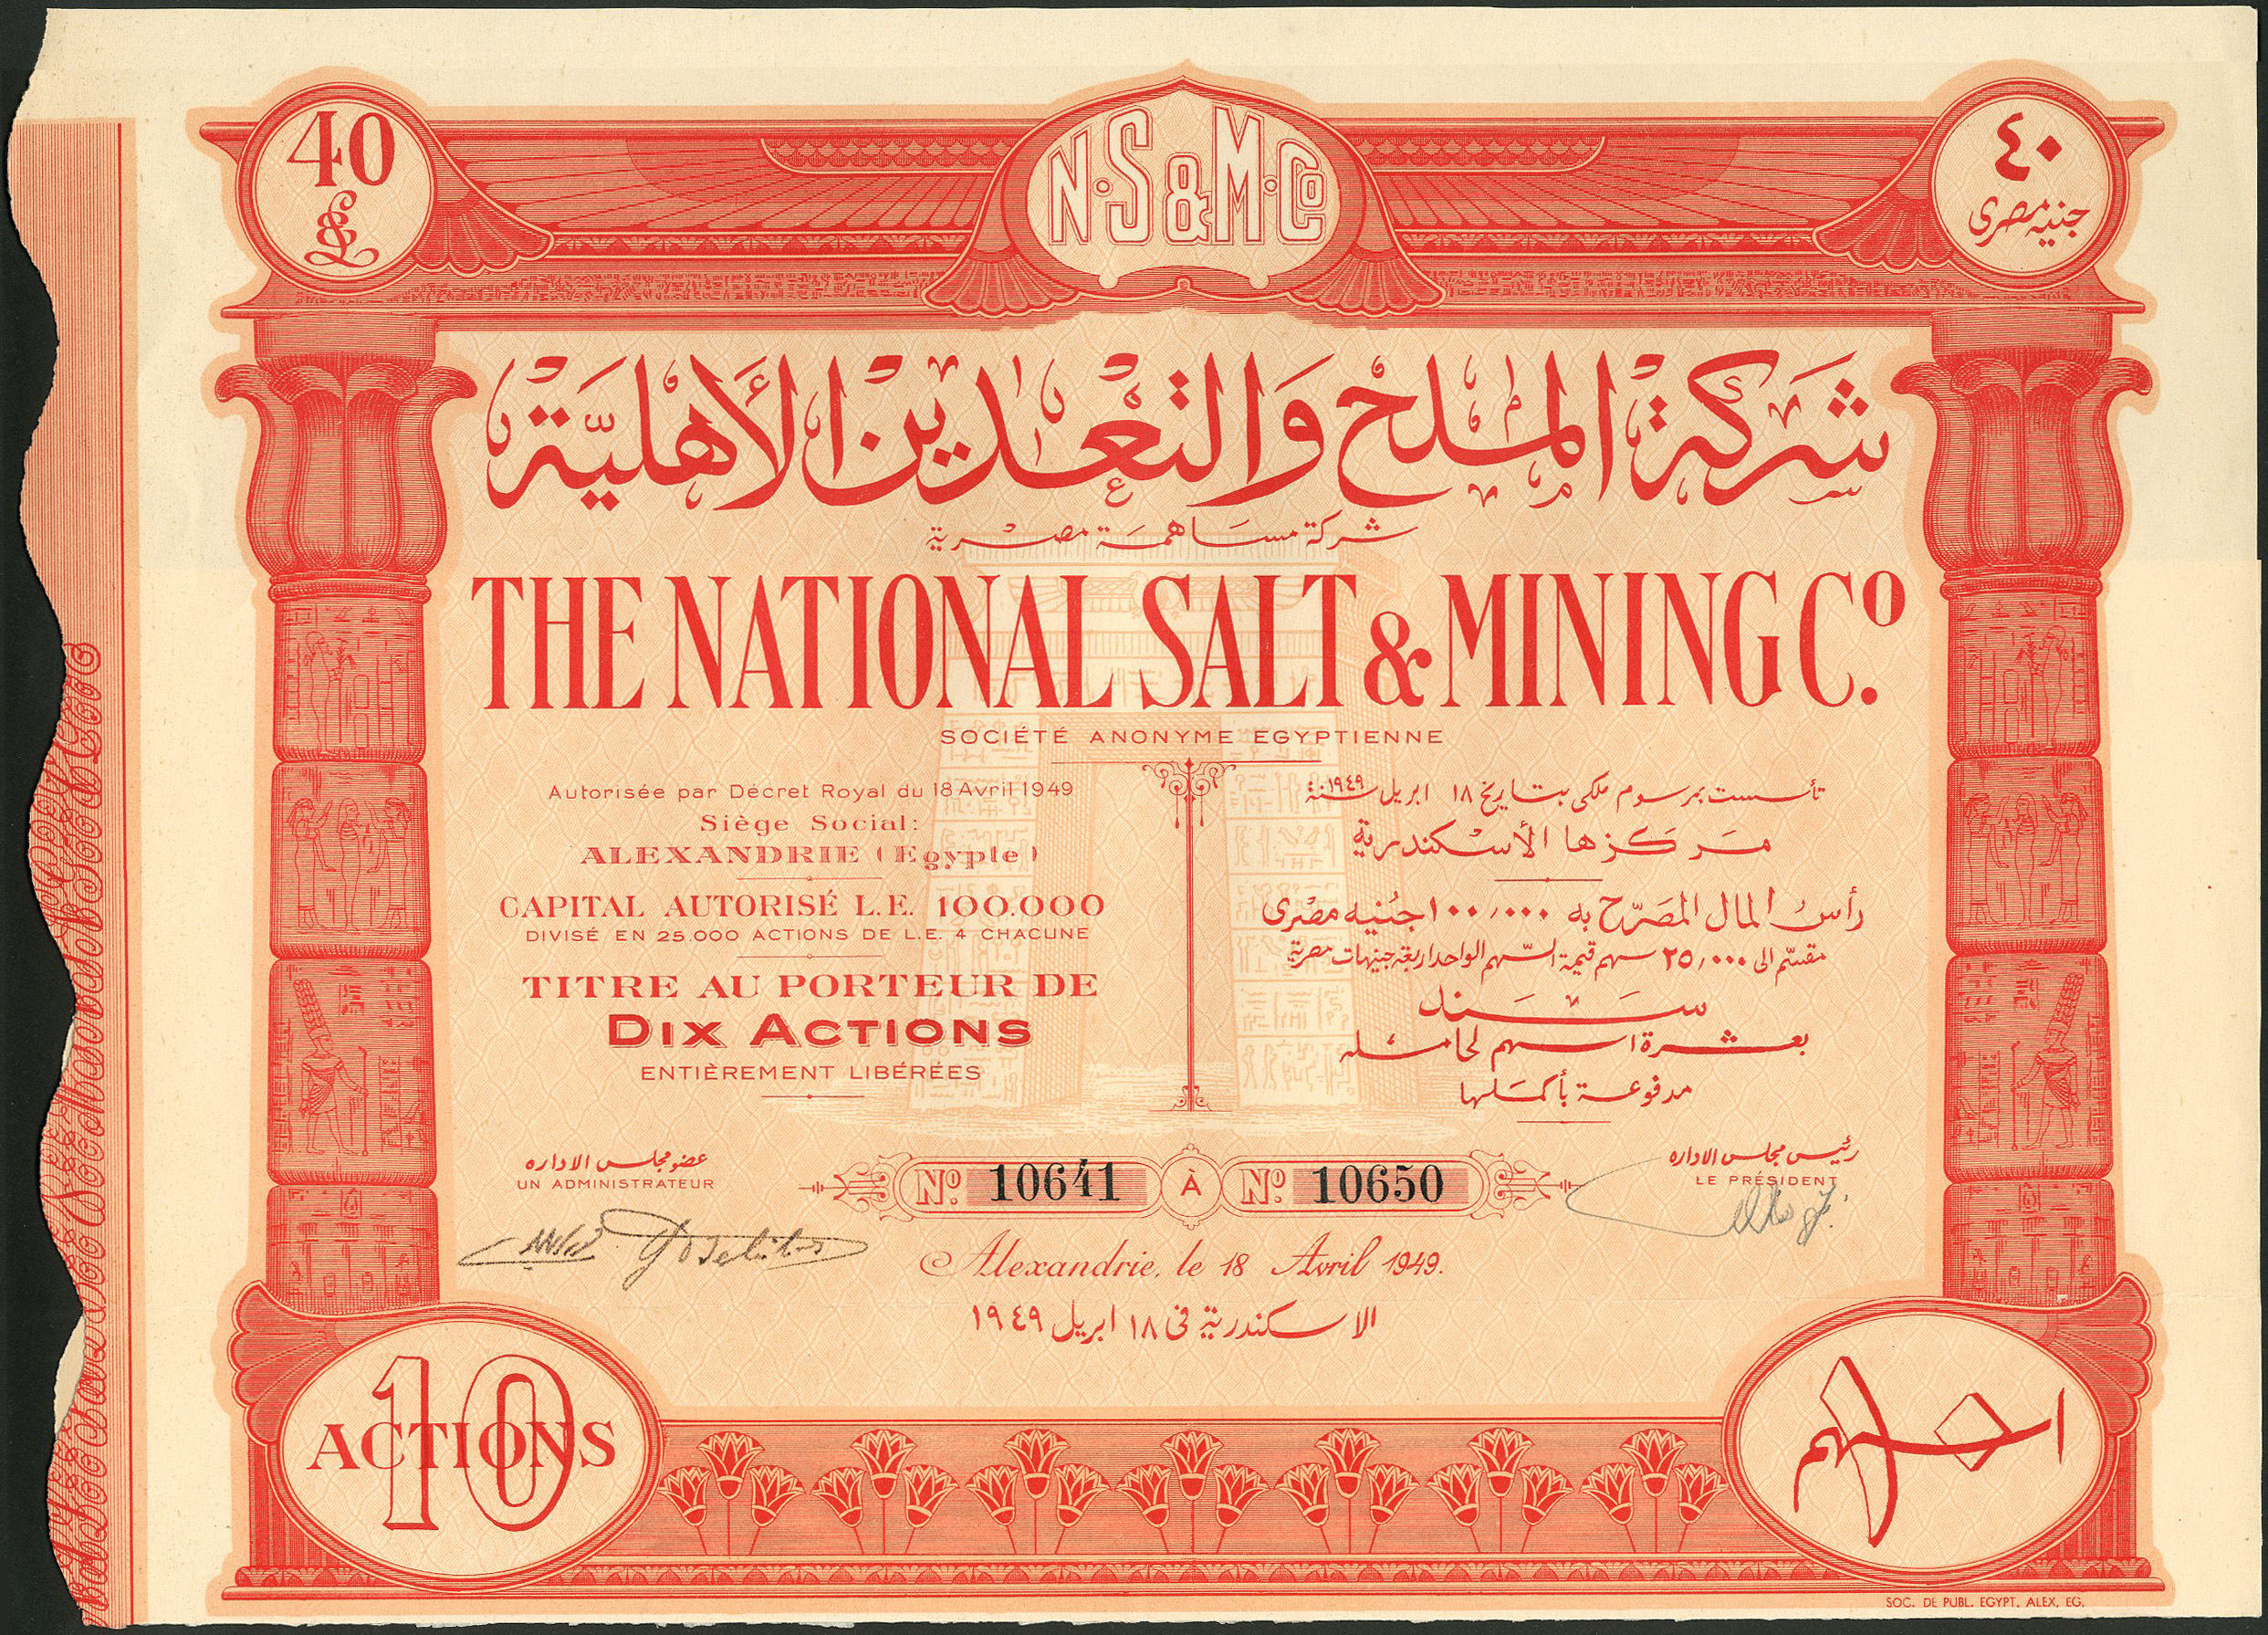 40
£
N.S&M.Co
٤٠
جنيه مصرى
شركة الملح وَالتعْدين الأهليَّة
شركة مساهمة مصرية
THE NATIONAL SALT & MINING Cº.
SOCIÉTÉ ANONYME EGYPTIENNE
Autorisée par Décret Royal du 18 Avril 1949
Siège Social:
ALEXANDRIE (Egypte)
CAPITAL AUTORISÉ L.E. 100.000
DIVISÉ EN 25.000 ACTIONS DE L.E. 4 CHACUNE
TITRE AU PORTEUR DE
DIX ACTIONS
ENTIÈREMENT LIBÉRÉES
تأسست بمرسوم ملكى بتاريخ ١٨ ابريل سنة ١٩٤٩
مركزها الأسكندرية
رأس المال المصَرّح به ١٠٠,٠٠٠ جنيه مصرى
مقسّم الى ٢٥,٠٠٠ سهم قيمة السّهم الواحد اربعة جنيهات مصرية
سَنَد
بعشرة اسهم لحامله
مدفوعة بأكملها
عضو مجلس الاداره
UN ADMINISTRATEUR
Nº. 10641 À Nº. 10650
رئيس مجلس الاداره
LE PRÉSIDENT
Alexandrie, le 18 Avril 1949.
الاسكندرية فى ١٨ ابريل ١٩٤٩
10
ACTIONS
١٠ اسهم
SOC. DE PUBL. EGYPT. ALEX. EG.